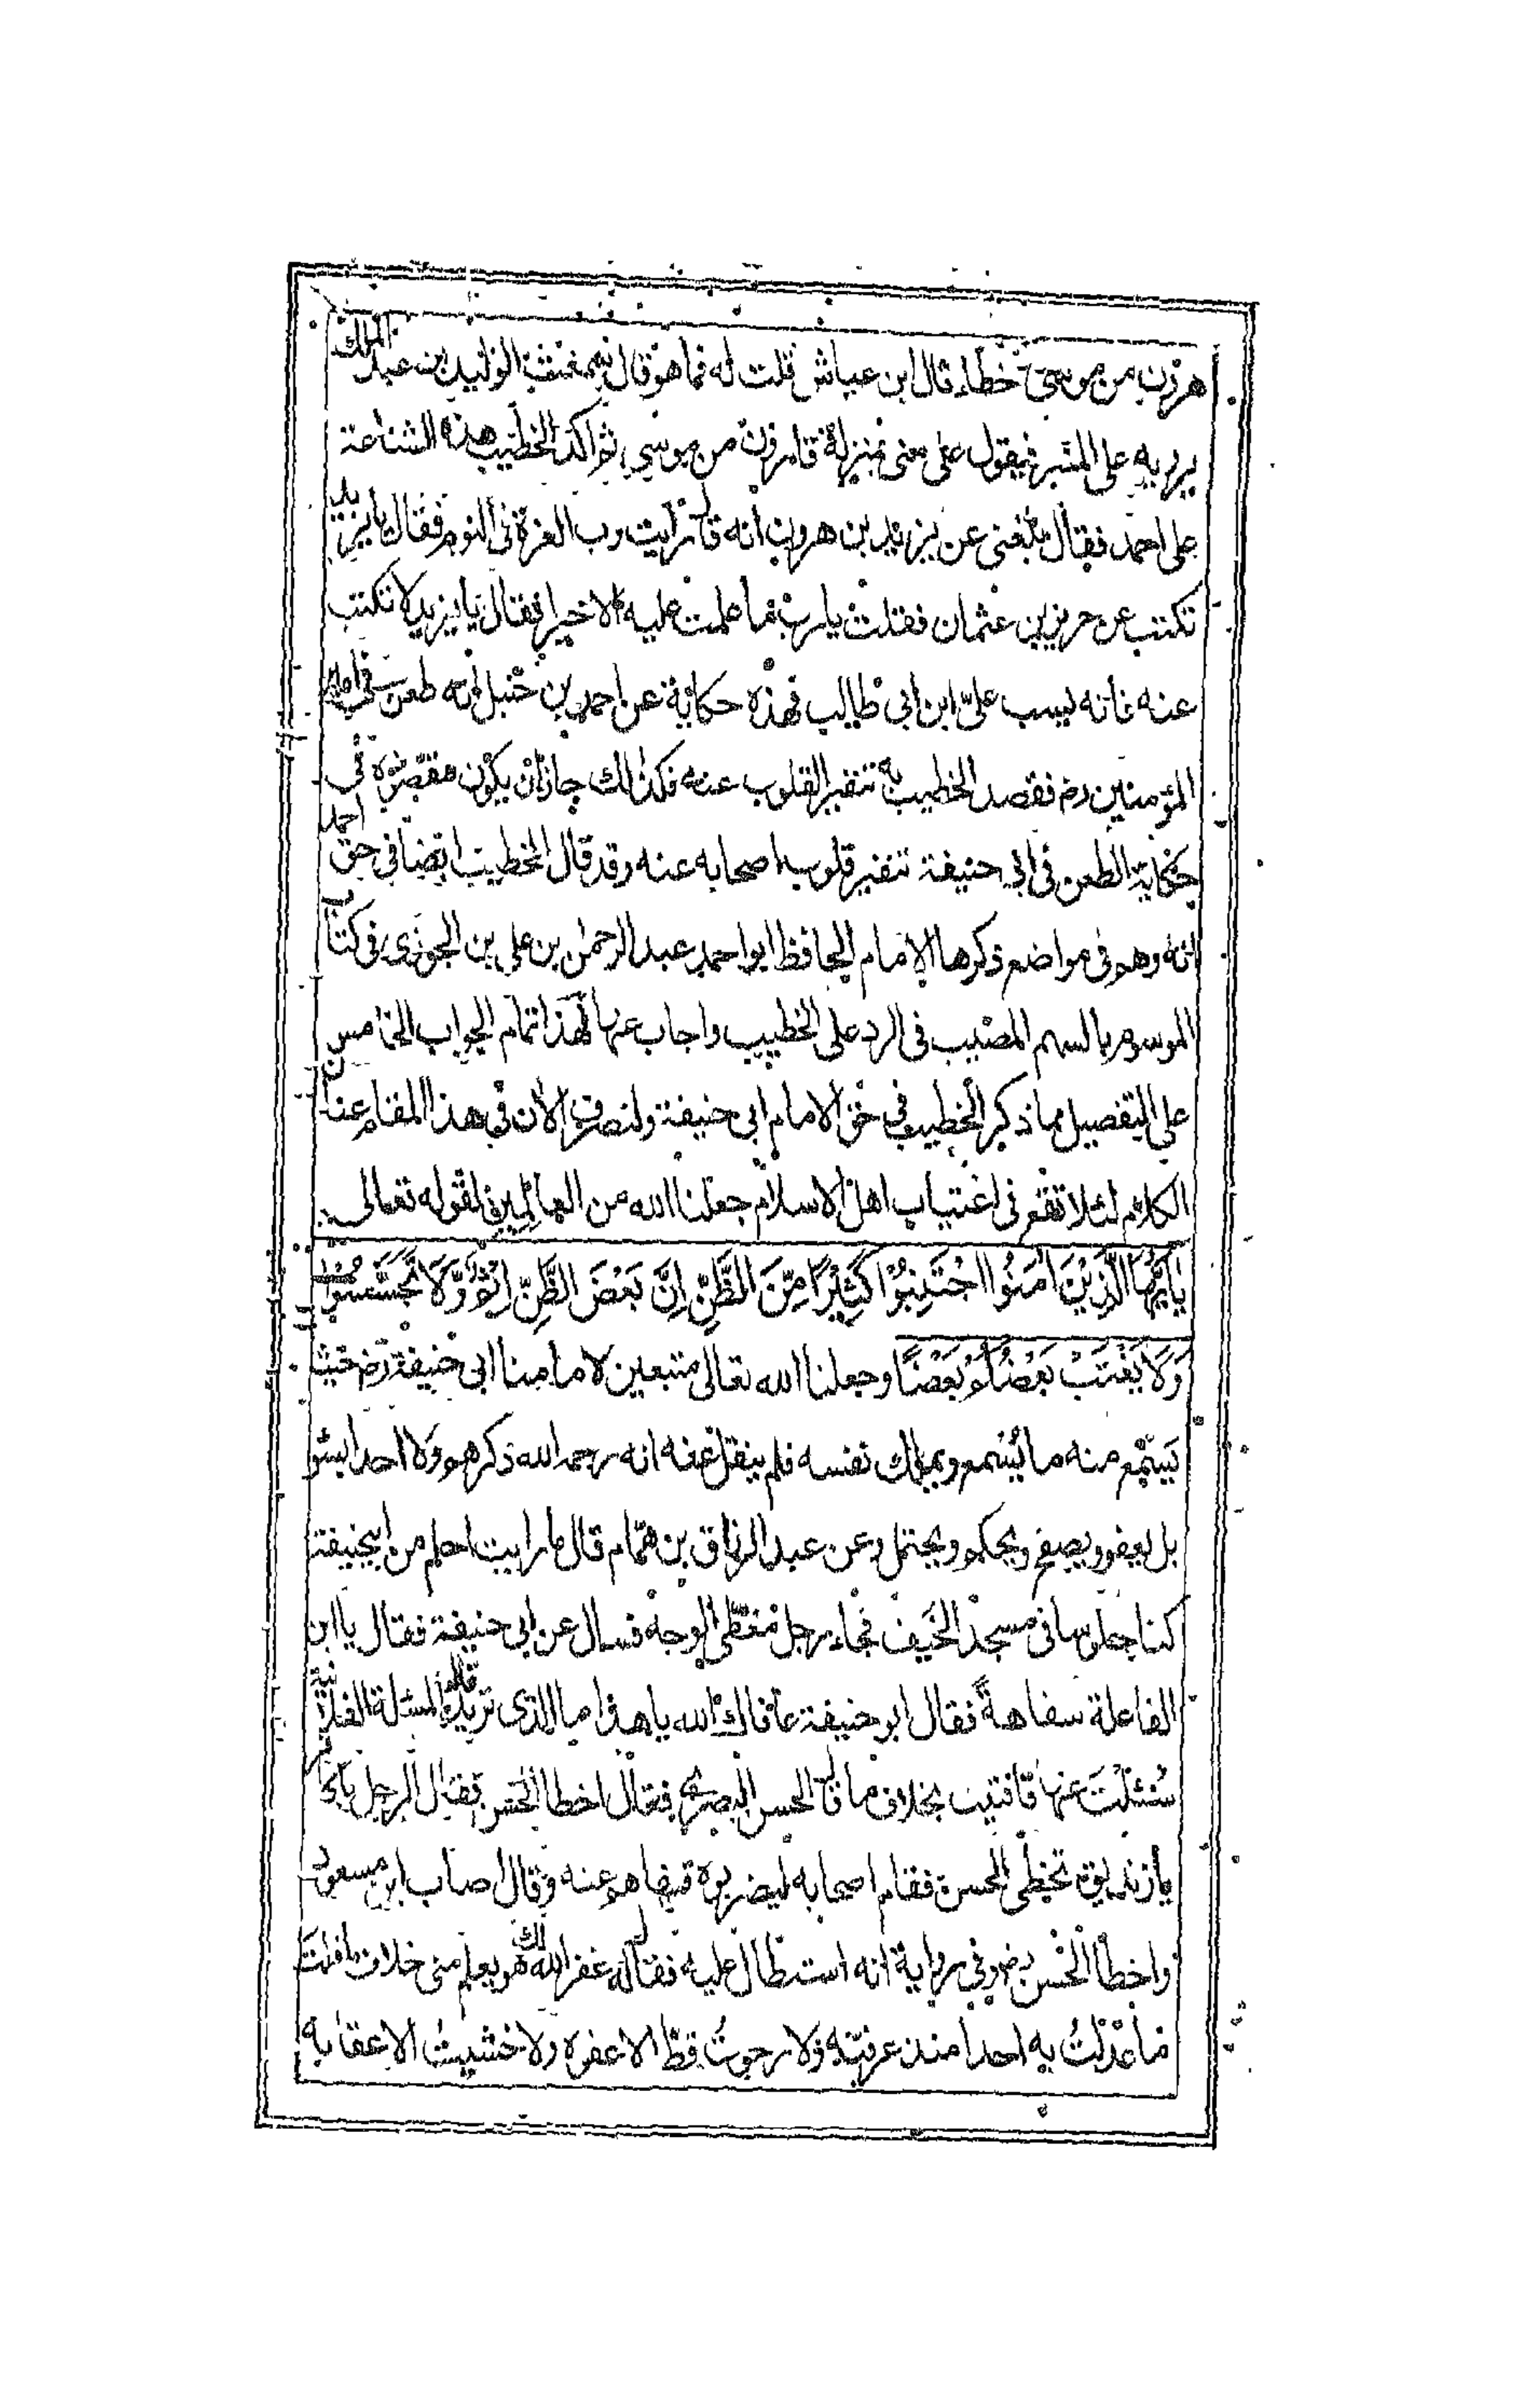 هرون من موسى خطاء قال ابن عياش قلت له فما هو قال سمعت الوليد بن عبد الملك
يرويه على المنبر فيقول على منى بمنزلة قارون من موسى ثم اكد الخطيب هذه الشناعة
على احمد فقال بلغنى عن يزيد بن هرون انه قال رايت رب العزة فى النوم فقال يا يزيد
تكتب عن حريز بن عثمان فقلت يا رب ما علمت عليه الا خيرا فقال يا يزيد لا تكتب
عنه فانه يسب على ابن ابى طالب فهذه حكاية عن احمد بن حنبل انه طعن فى امير
المؤمنين رض فقصد الخطيب به تنفير القلوب عنه فكذلك جاز ان يكون مقصوده فى
حكاية الطعن فى ابى حنيفة تنفير قلوب اصحابه عنه وقد قال الخطيب ايضا فى حق احمد
انه وهم فى مواضع ذكرها الامام الحافظ ابو احمد عبد الرحمن بن على بن الجوزى فى كتاب
الموسوم بالسهم المصيب فى الرد على الخطيب واجاب عنها فهذا تمام الجواب الخامس
على التفصيل مما ذكر الخطيب فى حق الامام ابى حنيفة ولنصرف الآن فى هذا المقام عنان
الكلام لئلا تقع فى اغتياب اهل الاسلام جعلنا الله من العالمين لقوله تعالى
يٰاَيُّهَا الَّذِيْنَ اٰمَنُوا اجْتَنِبُوْا كَثِيْرًا مِّنَ الظَّنِّ اِنَّ بَعْضَ الظَّنِّ اِثْمٌ وَّلَا تَجَسَّسُوْا
وَلَا يَغْتَبْ بَعْضُكُمْ بَعْضًا وجعلنا الله تعالى متبعين لامامنا ابى حنيفة رض حيث
يَسْتَمِع منه ما يُسْمع ويملك نفسه فلم ينقل عنه انه رحمه الله ذكرهم ولا احدا بسوء
بل يعفو ويصفح ويحكم ويحتمل وعن عبد الرزاق بن همّام قال ما رايت احلم من ابيحنيفة
كنا جلوسا فى مسجد الخَيف فجاء رجل مغطّى الوجه فسال عن ابى حنيفة فقال يا ابن
الفاعلة سفاهةً فقال ابو حنيفة عافاك الله يا هذا ما الذى تريد قال المسئلة الفلانية
سُئِلْتَ عنها فافتيت بخلاف ما قال الحسن البصرى فقال اخطا الحسن فقال الرجل يا كافر
يا زنديق تخطى الحسن فقام اصحابه ليضربوه فنهاهم عنه وقال اصاب ابن مسعود
واخطا الحسن رض وفى رواية انه استطال عليه فقال له غفر الله لك هو يعلم منى خلاف ما قلتَ
ما عدلتُ به احدا منذ عرفته ولا رجوتُ قطّ الا عفوه ولا خشيتُ الا عقابه